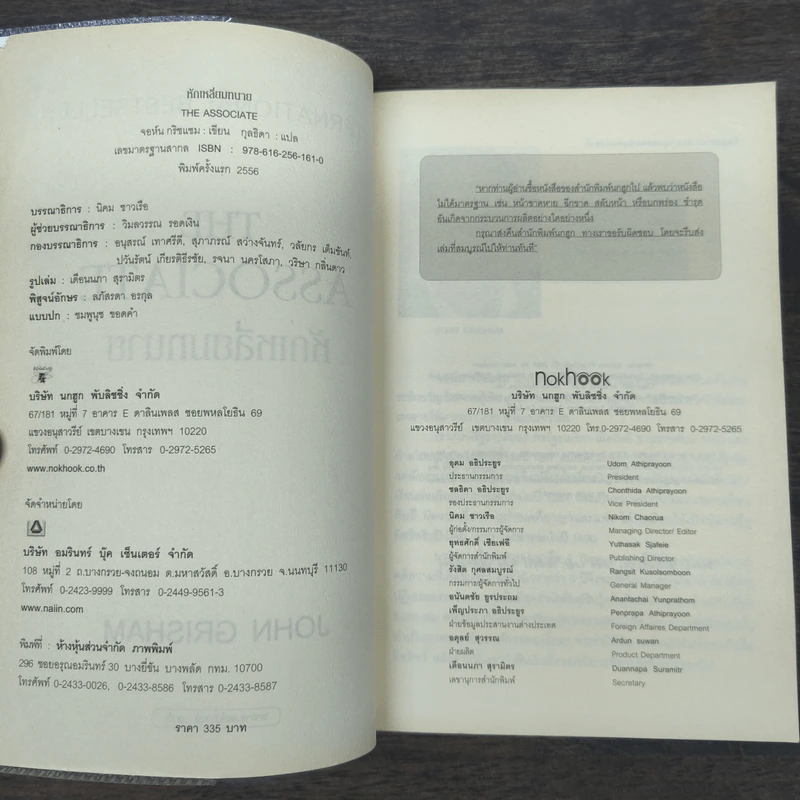 หักเหลี่ยมทนาย
THE ASSOCIATE
จอห์น กริชแชม : เขียน กุลธิดา : แปล
เลขมาตรฐานสากล ISBN : 978-616-256-161-0
พิมพ์ครั้งแรก 2556
บรรณาธิการ : นิคม ชาวเรือ
ผู้ช่วยบรรณาธิการ : วิมลวรรณ รอดเงิน
กองบรรณาธิการ : อนุสรณ์ เทาศรีดี, สุภาภรณ์ สว่างจันทร์, วลัยกร เต็มขันท์,
ปวันรัตน์ เกียรติธีรชัย, รจนา นครโสภา, วริษา กลิ่นดาว
รูปเล่ม : เดือนนภา สุรามิตร
พิสูจน์อักษร : ลภัสรดา อรกุล
แบบปก : ชมพูนุช ชอดคำ
จัดพิมพ์โดย
บริษัท นกฮูก พับลิชชิ่ง จำกัด
67/181 หมู่ที่ 7 อาคาร E ดาลินเพลส ซอยพหลโยธิน 69
แขวงอนุสาวรีย์ เขตบางเขน กรุงเทพฯ 10220
โทรศัพท์ 0-2972-4690 โทรสาร 0-2972-5265
www.nokhook.co.th
จัดจำหน่ายโดย
บริษัท อมรินทร์ บุ๊ค เซ็นเตอร์ จำกัด
108 หมู่ที่ 2 ถ.บางกรวย-จงถนอม ต.มหาสวัสดิ์ อ.บางกรวย จ.นนทบุรี 11130
โทรศัพท์ 0-2423-9999 โทรสาร 0-2449-9561-3
www.naiin.com
พิมพ์ที่ : ห้างหุ้นส่วนจำกัด ภาพพิมพ์
296 ซอยอรุณอมรินทร์ 30 บางยี่ขัน บางพลัด กทม. 10700
โทรศัพท์ 0-2433-0026, 0-2433-8586 โทรสาร 0-2433-8587
ราคา 335 บาท
"หากท่านผู้อ่านซื้อหนังสือของสำนักพิมพ์นกฮูกไป แล้วพบว่าหนังสือ
ไม่ได้มาตรฐาน เช่น หน้าขาดหาย ฉีกขาด สลับหน้า หรือบกพร่อง ชำรุด
อันเกิดจากกระบวนการผลิตอย่างใดอย่างหนึ่ง
กรุณาส่งคืนสำนักพิมพ์นกฮูก ทางเราขอรับผิดชอบ โดยจะรีบส่ง
เล่มที่สมบูรณ์ไปให้ท่านทันที"
nokhook
บริษัท นกฮูก พับลิชชิ่ง จำกัด
67/181 หมู่ที่ 7 อาคาร E ดาลินเพลส ซอยพหลโยธิน 69
แขวงอนุสาวรีย์ เขตบางเขน กรุงเทพฯ 10220 โทร.0-2972-4690 โทรสาร 0-2972-5265
อุดม อธิประยูร Udom Athiprayoon
ประธานกรรมการ President
ชลธิดา อธิประยูร Chonthida Athiprayoon
รองประธานกรรมการ Vice President
นิคม ชาวเรือ Nikom Chaorua
ผู้ก่อตั้ง/กรรมการผู้จัดการ Managing Director/ Editor
ยุทธศักดิ์ เชียเฟอี Yuthasak Sjafeie
ผู้จัดการสำนักพิมพ์ Publishing Director
รังสิต กุศลสมบูรณ์ Rangsit Kusolsomboon
กรรมการ/ผู้จัดการทั่วไป General Manager
อนันตชัย ยูรประถม Anantachai Yunprathom
เพ็ญประภา อธิประยูร Penprapa Athiprayoon
ฝ่ายข้อมูลประสานงานต่างประเทศ Foreign Affaires Department
อดุลย์ สุวรรณ Ardun suwan
ฝ่ายผลิต Product Department
เดือนนภา สุรามิตร Duannapa Suramitr
เลขานุการสำนักพิมพ์ Secretary